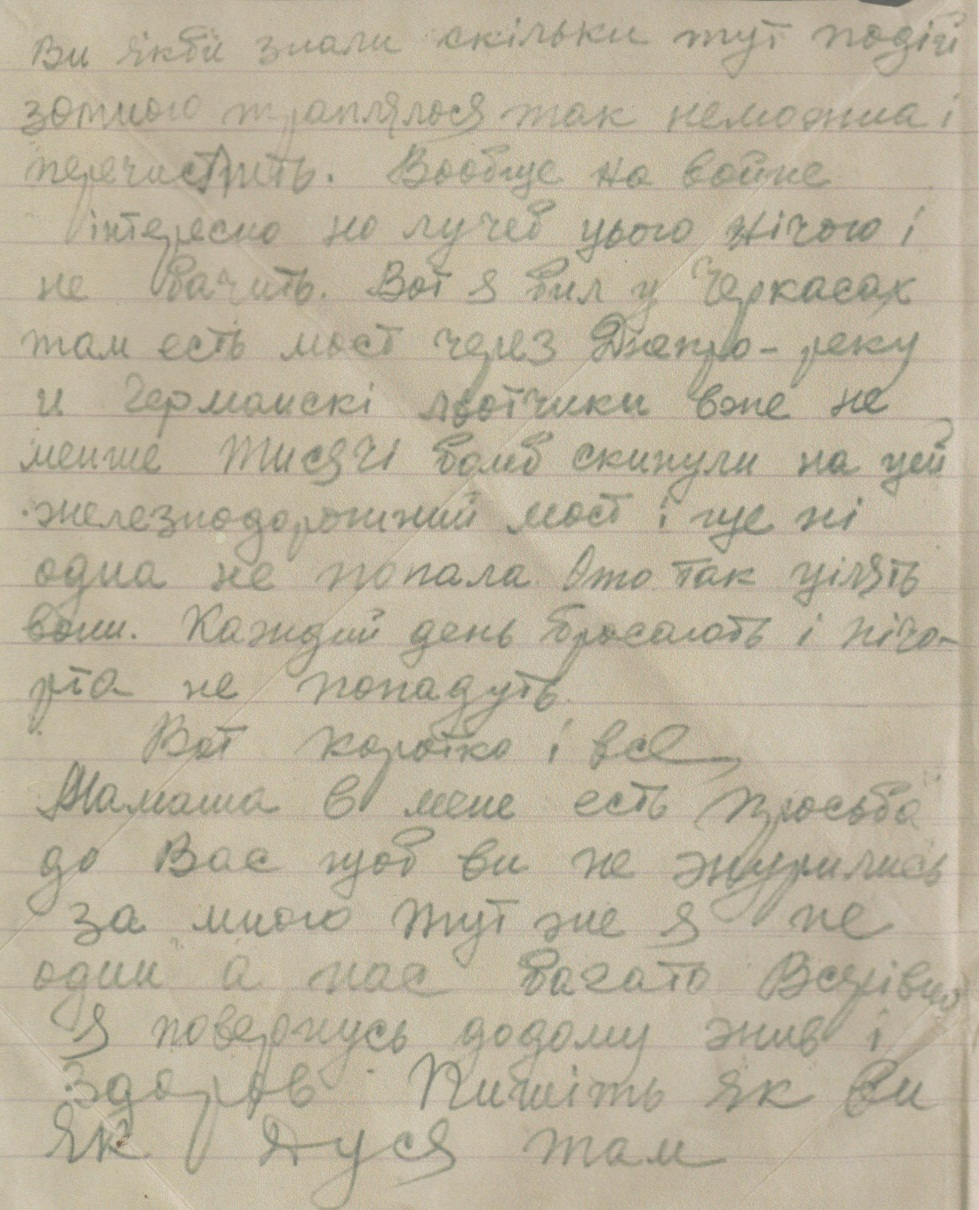 Ви якби знали скільки тут подій
зомною траплялося так неможна і
перечистить. Вообще на войне
інтересно но лучеб цього нічого і
не бачить. Вот я бил у Черкасах
там есть мост через Днепро-реку
и Германскі льотчики вже не
менше тисячі бомб скинули на цей
железнодорожний мост і ще ні
одна не попала. Ото так цілять
вони. Каждий день бросають і нічо-
рта не попадуть.
Вот коротко і все
Мамаша в мене есть просьба
до Вас щоб ви не журились
за мною тут же я не
один а нас багато Всерівно
я повернусь додому жив і
здоров Пишіть як ви
як Дуся там